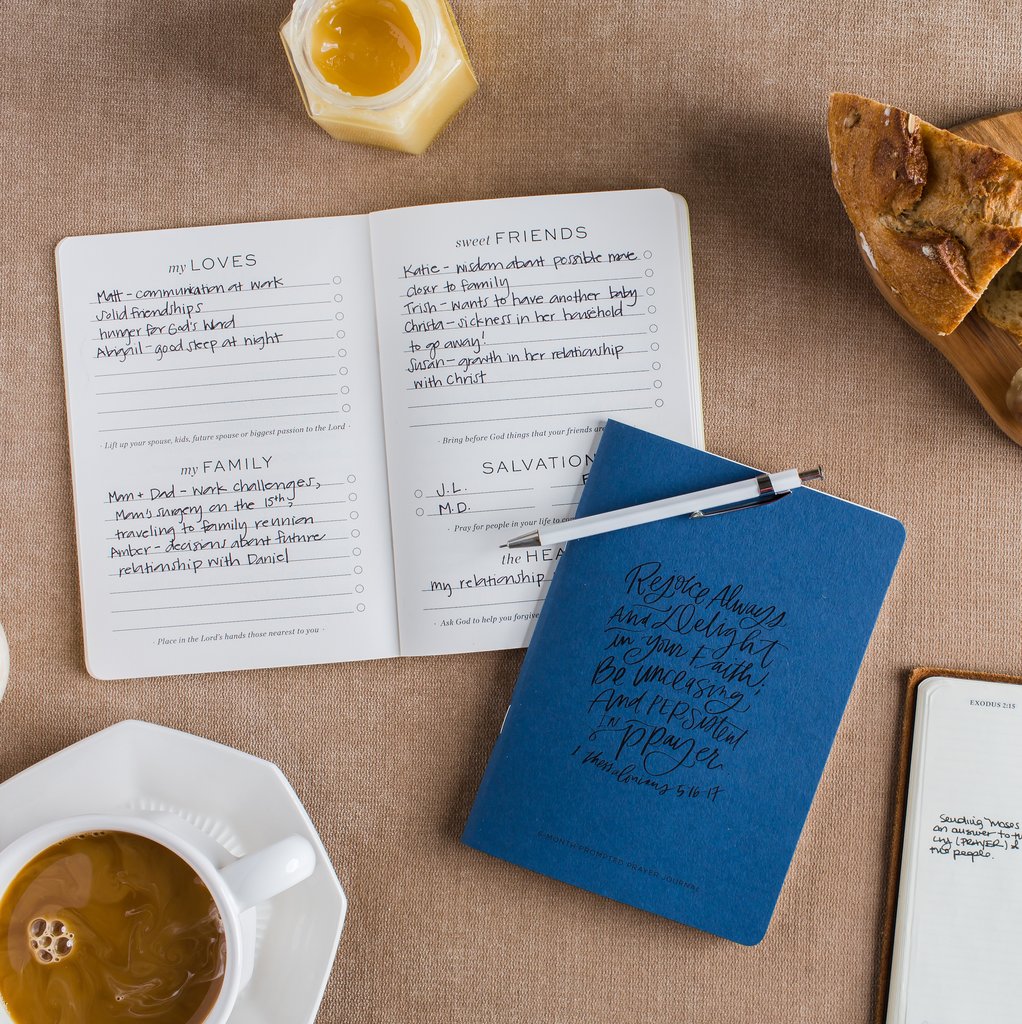 my LOVES
Matt - communication at work
solid friendships
hunger for God's Word
Abigail - good sleep at night
· Lift up your spouse, kids, future spouse or biggest passion to the Lord ·
my FAMILY
Mom + Dad - work challenges,
Mom's surgery on the 15th,
traveling to family reunion
Amber - decisions about future
relationship with Daniel
· Place in the Lord's hands those nearest to you ·
sweet FRIENDS
Katie - wisdom about possible move
closer to family
Trish - wants to have another baby
Christa - sickness in her household
to go away!
Susan - growth in her relationship
with Christ
· Bring before God things that your friends are
SALVATION
J.L.
M.D.
· Pray for people in your life to
the
my relationship
· Ask God to help you
Rejoice Always
And Delight
in your Faith;
Be unceasing
And PERSistent
IN prayer
1 Thessalonians 5:16-17
6-MONTH PROMPTED PRAYER JOURNAL
EXODUS 2:15
Sending Moses
an answer to
cry (PRAYER)
the people.